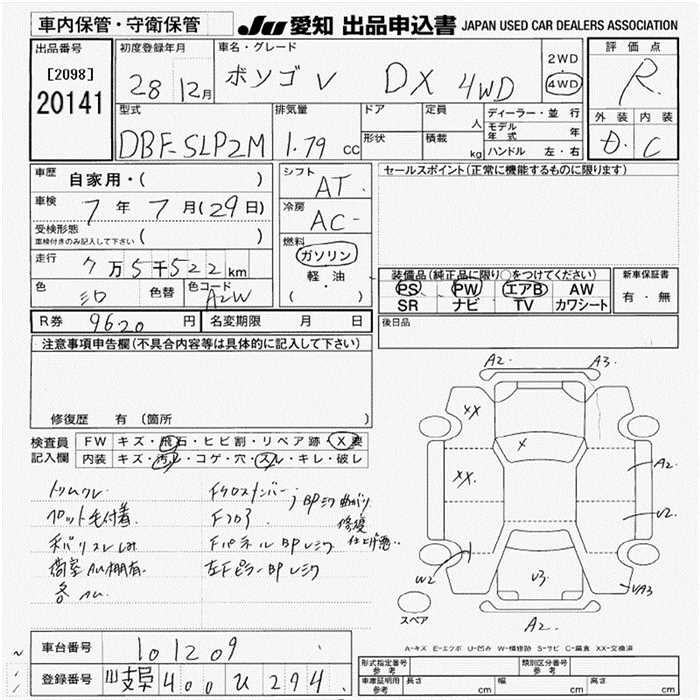 車内保管・守衛保管
JU 愛知 出品申込書 JAPAN USED CAR DEALERS ASSOCIATION
出品番号
[2098]
20141
初度登録年月
28 12月
車名・グレード
ボンゴV DX 4WD
2WD
4WD
評価点
R
外装 内装
D C
型式
DBF-SLP2M
排気量
1.79 cc
ドア
形状
定員
人
積載
kg
ディーラー・並行
モデル年式 年
ハンドル 左・右
車歴
自家用・( )
車検
7年7月(29日)
受検形態
車検付きのみ記入して下さい ( )
走行
7万5千522km
色
シロ
色替
色コード
A2W
シフト
AT
冷房
AC
燃料
ガソリン
軽・油
( ・ )
セールスポイント(正常に機能するものに限ります)
装備品(純正品に限り○をつけてください)
PS PW エアB AW
SR ナビ TV カワシート
新車保証書
有・無
R券 9620円
名変期限 月 日
後日品
注意事項申告欄(不具合内容等は具体的に記入して下さい)
修復歴 有 (箇所 )
検査員記入欄
FW キズ・飛石・ヒビ割・リペア跡・X要
内装 キズ・汚レ・コゲ・穴・スレ・キレ・破レ
Fクロスメンバー
Fフロア
Fパネル BP
左Fピラー BP
修復
A2 A3
XX
X
XX
A2
U2
W2
U3
A2
スペア
A-キズ E-エクボ U-凹み W-補修跡 S-サビ C-腐食 XX-交換済
車台番号
101209
登録番号
岐阜 400 U 294
形式指定番号
参考
類別区分番号
参考
車庫証明用
参考
長さ cm
幅 cm
高さ cm